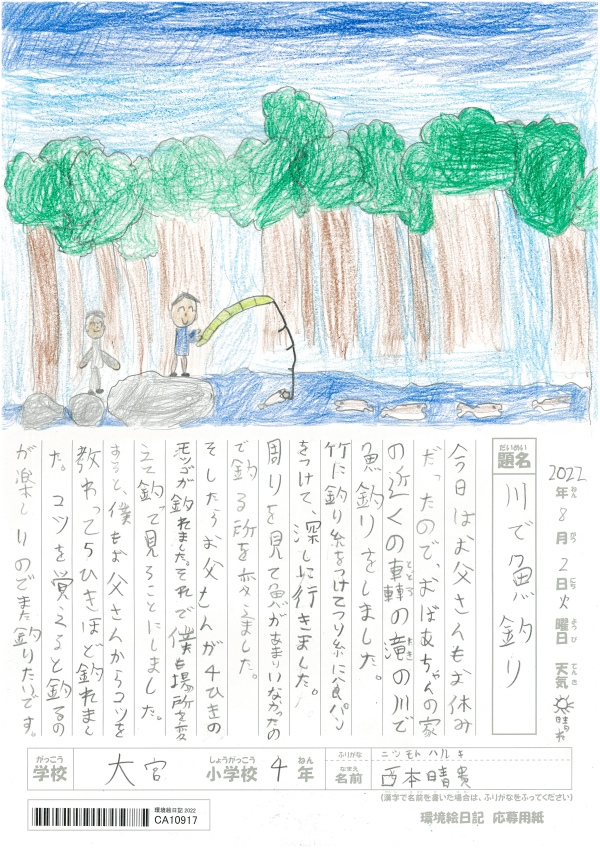 2022年8月2日火曜日 天気 晴れ
ねん がつ にち ようび てんき
だいめい
題名 川で魚釣り
今日はお父さんもお休み
だったので、おばあちゃんの家
の近くの轟の滝の川で
魚釣りをしました。
竹に釣り糸をつけてつり糸に食パン
をつけて、深しに行きました。
周りを見て魚があまりいなかったの
で釣る所を変えました。
そしたらお父さんが4ひきの
モツゴが釣れました。それで僕も場所を変
えて釣って見ることにしました。
すると、僕もお父さんからコツを
教わって5ひきほど釣れまし
た。コツを覚えると釣るの
が楽しいのでまた釣りたいです。
がっこう しょうがっこう ねん ふりがな ニシモト ハルキ
学校 大宮 小学校 4年 なまえ 名前 西本晴貴
(漢字で名前を書いた場合は、ふりがなをふってください)
環境絵日記 2022
CA10917
環境絵日記 応募用紙